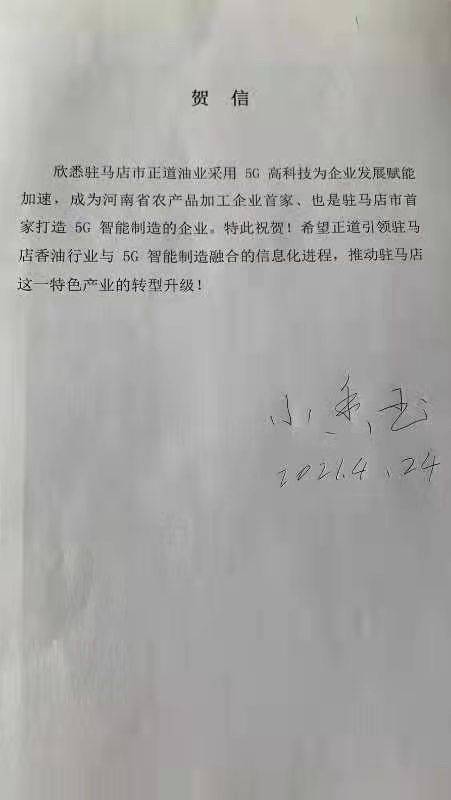 贺 信
欣悉驻马店市正道油业采用 5G 高科技为企业发展赋能
加速，成为河南省农产品加工企业首家、也是驻马店市首
家打造 5G 智能制造的企业。特此祝贺！希望正道引领驻马
店香油行业与 5G 智能制造融合的信息化进程，推动驻马店
这一特色产业的转型升级！
2021.4.24